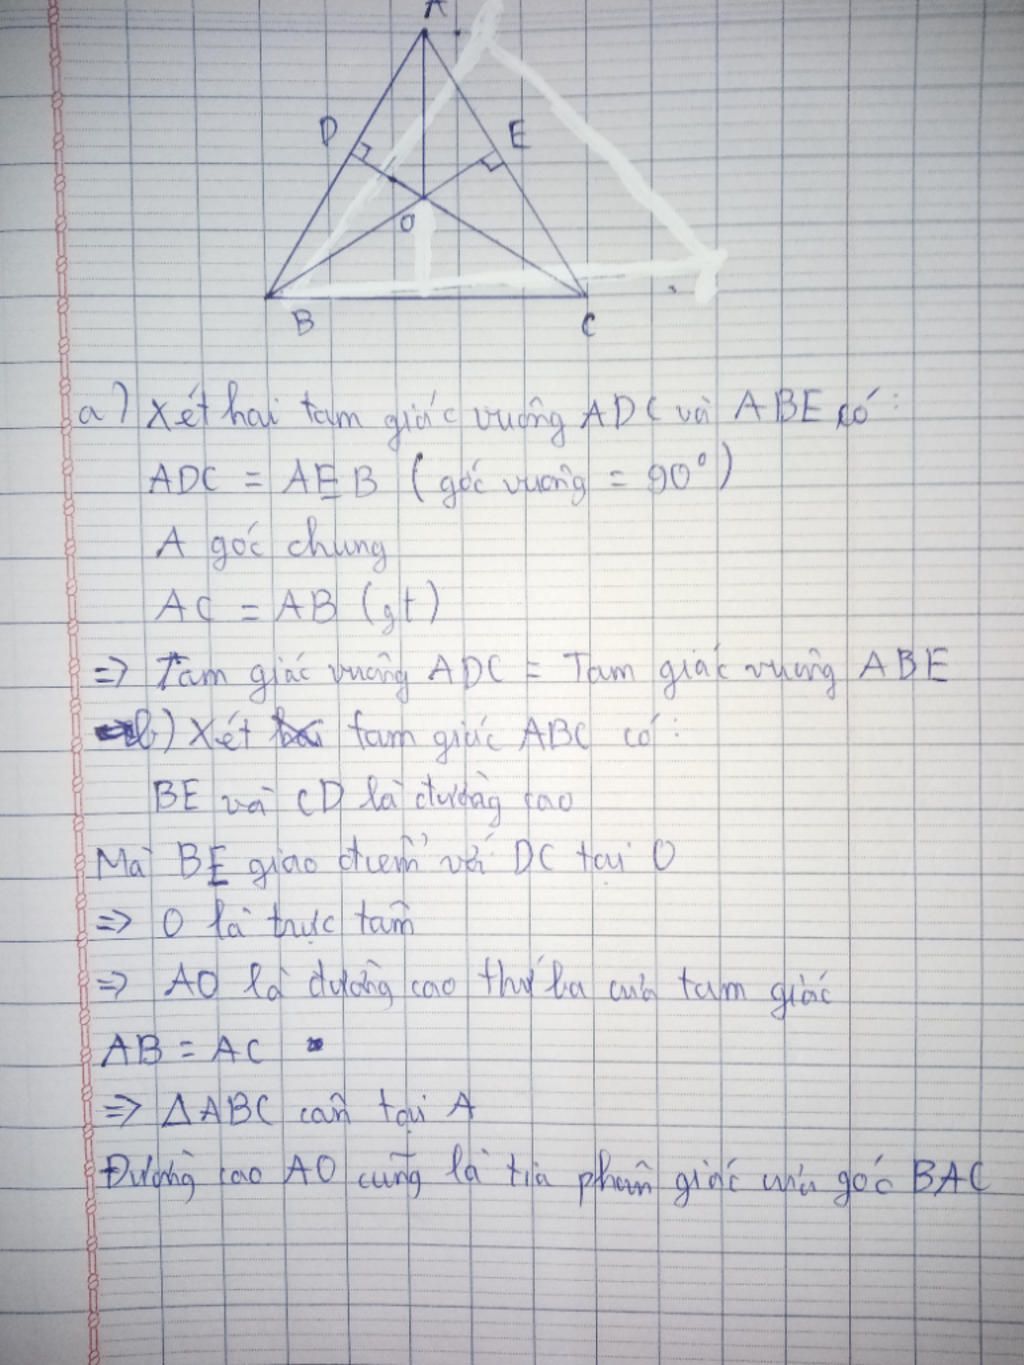 A
D
E
O
B
C
a) Xét hai tam giác vuông ADC và ABE có:
ADC = AEB (góc vuông = 90°)
A góc chung
AC = AB (gt)
=> Tam giác vuông ADC = Tam giác vuông ABE
b) Xét tam giác ABC có:
BE và CD là đường cao
Mà BE giao điểm với DC tại O
=> O là trực tâm
=> AO là đường cao thứ ba của tam giác
AB = AC
=> ΔABC cân tại A
Đường cao AO cũng là tia phân giác của góc BAC